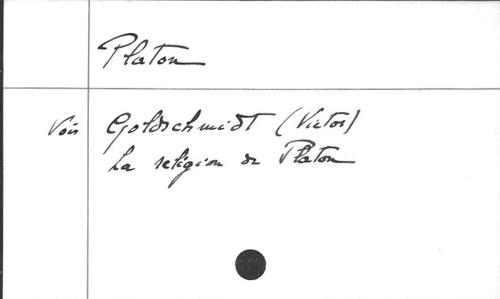 Platon
Vois Goldschmidt (Victor)
La religion de Platon